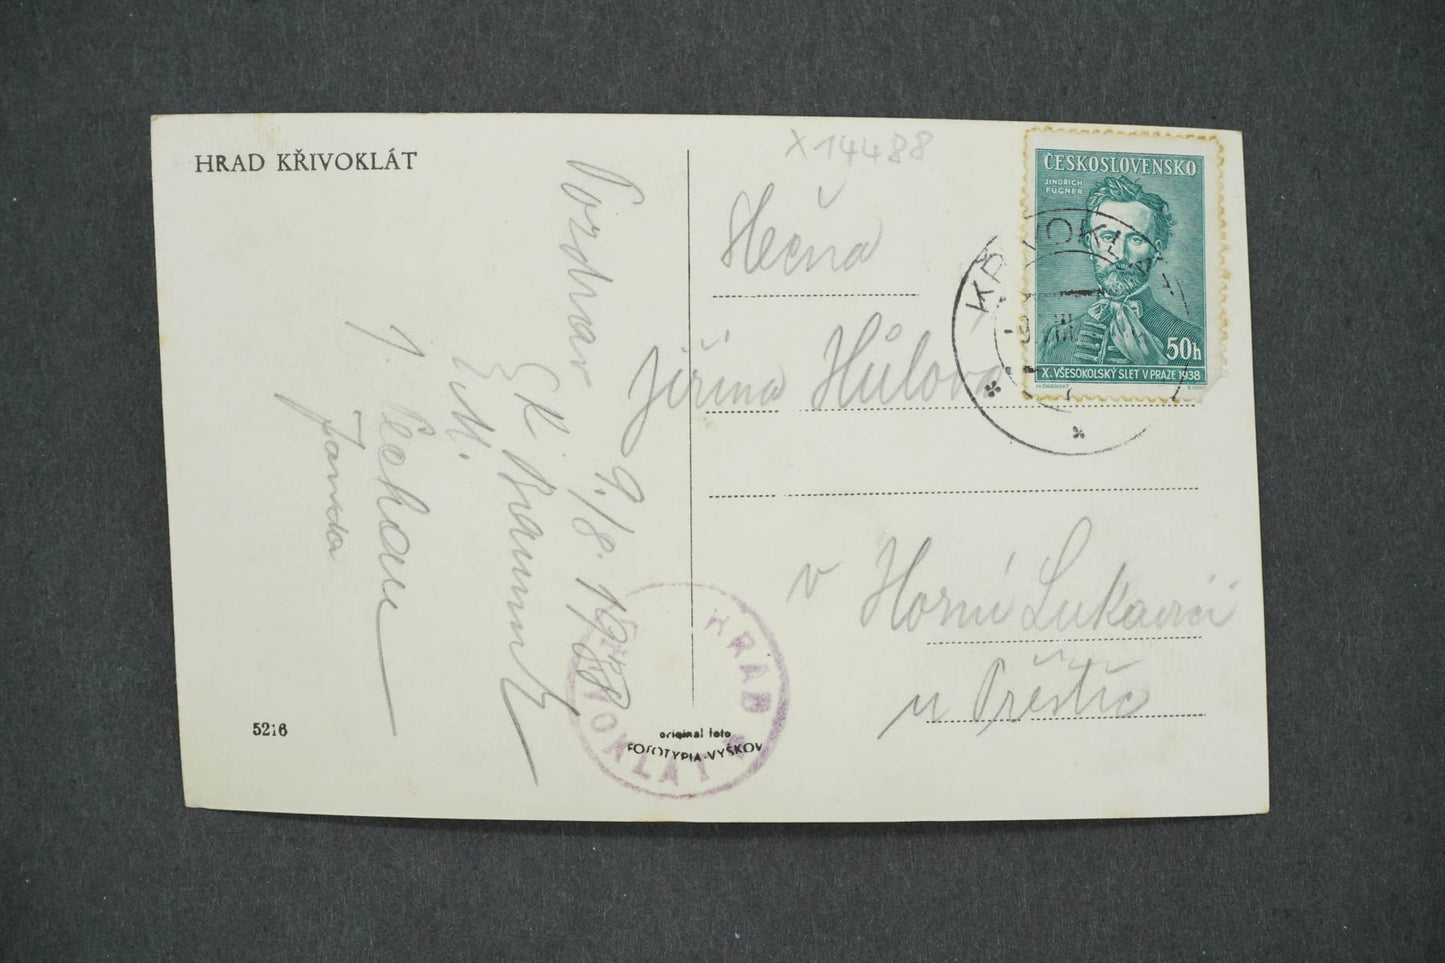 HRAD KŘIVOKLÁT
X14488
ČESKOSLOVENSKO
JINDŘICH
FÜGNER
50h
X. VŠESOKOLSKÝ SLET V PRAZE 1938
KŘIVOKLÁT
Slečna
Jiřina Hůlova
v Horní Lukavici
u Přeštic
Pozdrav 9./8. 1938
J.
Janda
5216
HRAD
KŘIVOKLÁT
original foto
FOTOTYPIA-VYŠKOV